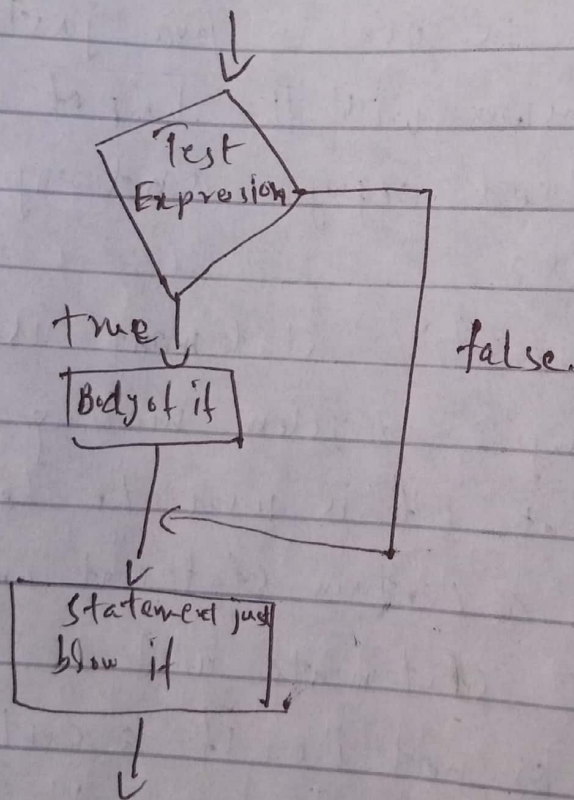 Test
Expresion
true
false.
Body of if
Statement just
blow if